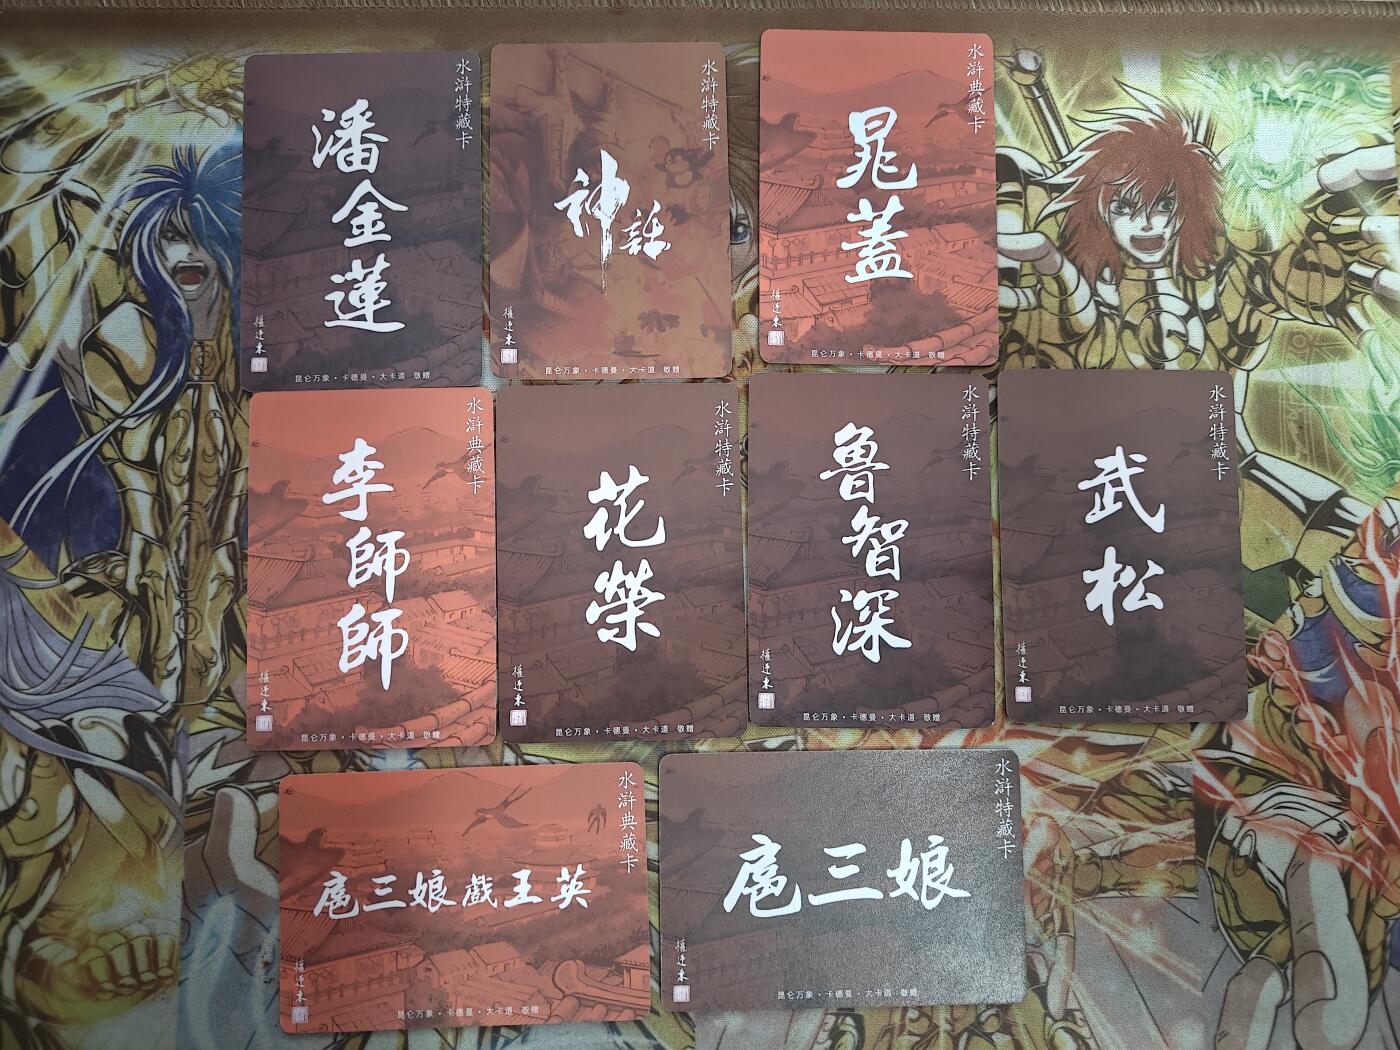 水滸特藏卡
潘金蓮
權迎東
昆仑万象·卡德曼·大卡道 敬贈
水滸特藏卡
神話
權迎東
昆仑万象·卡德曼·大卡道 敬贈
水滸典藏卡
晁蓋
權迎東
昆仑万象·卡德曼·大卡道 敬贈
水滸典藏卡
李師師
權迎東
昆仑万象·卡德曼·大卡道 敬贈
水滸特藏卡
花榮
權迎東
昆仑万象·卡德曼·大卡道 敬贈
水滸特藏卡
魯智深
權迎東
昆仑万象·卡德曼·大卡道 敬贈
水滸特藏卡
武松
權迎東
昆仑万象·卡德曼·大卡道 敬贈
水滸典藏卡
扈三娘戲王英
權迎東
昆仑万象·卡德曼·大卡道 敬贈
水滸特藏卡
扈三娘
權迎東
昆仑万象·卡德曼·大卡道 敬贈